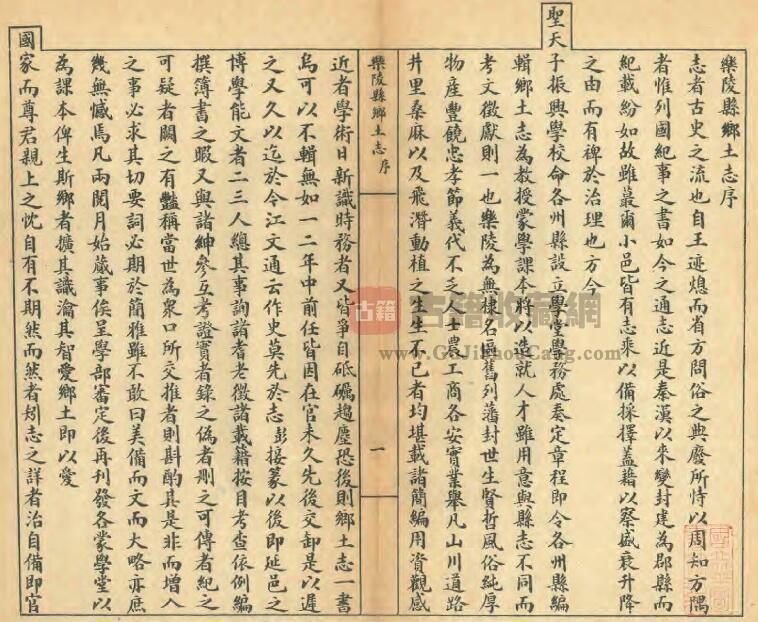 樂陵縣鄉土志序
志者古史之流也自王迹熄而省方問俗之典廢所恃以周知方隅
者惟列國紀事之書如今之通志近是秦漢以來變封建為郡縣而
紀載紛如故雖蕞爾小邑皆有志乘以備採擇蓋藉以察盛衰升降
之由而有裨於治理也方今
聖天子振興學校命各州縣設立學堂學務處奏定章程即令各州縣編
輯鄉土志為教授蒙學課本將以造就人才雖用意與縣志不同而
考文徵獻則一也樂陵為無棣名區舊列藩封世生賢哲風俗純厚
物產豐饒忠孝節義代不乏人士農工商各安實業舉凡山川道路
井里桑麻以及飛潛動植之生生不已者均堪載諸簡編用資觀感
樂陵縣鄉土志 序
一
近者學術日新識時務者又皆爭自砥礪趨塵恐後則鄉土志一書
烏可以不輯無如一二年中前任皆因在官未久先後交卸是以遲
之又久以迄於今江文通云作史莫先於志彭接篆以後即延邑之
博學能文者二三人總其事詢諸耆老徵諸載籍按目考查依例編
撰簿書之暇又與諸紳參互考證實者錄之偽者刪之可傳者紀之
可疑者闕之有豔稱當世為眾口所交推者則斟酌其是非而增入
之事必求其切要詞必期於簡雅雖不敢曰美備而文而大略亦庶
幾無憾焉凡兩閱月始蕆事俟呈學部審定後再刊發各蒙學堂以
為課本俾生斯鄉者擴其識瀹其智愛鄉土即以愛
國家而尊君親上之忱自有不期然而然者矧志之詳者治自備即官
古籍 古籍收藏網
www.GuJiShouCang.com